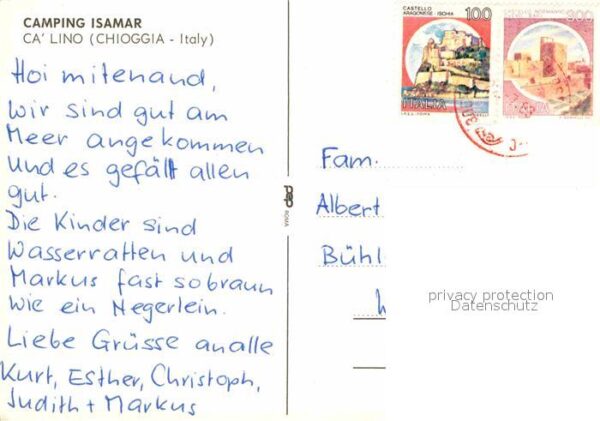 CAMPING ISAMAR
CA' LINO (CHIOGGIA - Italy)
Hoi mitenand,
wir sind gut am
Meer angekommen
und es gefällt allen
gut.
Die Kinder sind
Wasserratten und
Markus fast sobraun
wie ein Negerlein.
Liebe Grüsse an alle
Kurt, Esther, Christoph,
Judith + Markus
pep
ROMA
CASTELLO
ARAGONESE - ISCHIA
100
ITALIA
300
Fam.
Albert
Bühl
privacy protection
Datenschutz